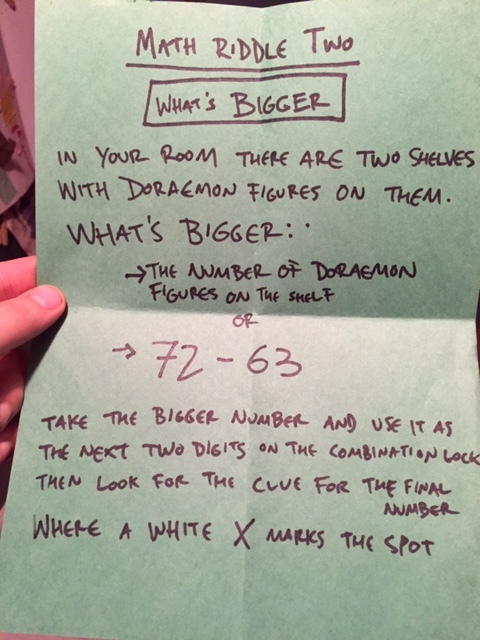 MATH RIDDLE TWO
WHAT'S BIGGER
IN YOUR ROOM THERE ARE TWO SHELVES
WITH DORAEMON FIGURES ON THEM.
WHAT'S BIGGER:
→ THE NUMBER OF DORAEMON
FIGURES ON THE SHELF
OR
→ 72-63
TAKE THE BIGGER NUMBER AND USE IT AS
THE NEXT TWO DIGITS ON THE COMBINATION LOCK
THEN LOOK FOR THE CLUE FOR THE FINAL
NUMBER
WHERE A WHITE X MARKS THE SPOT